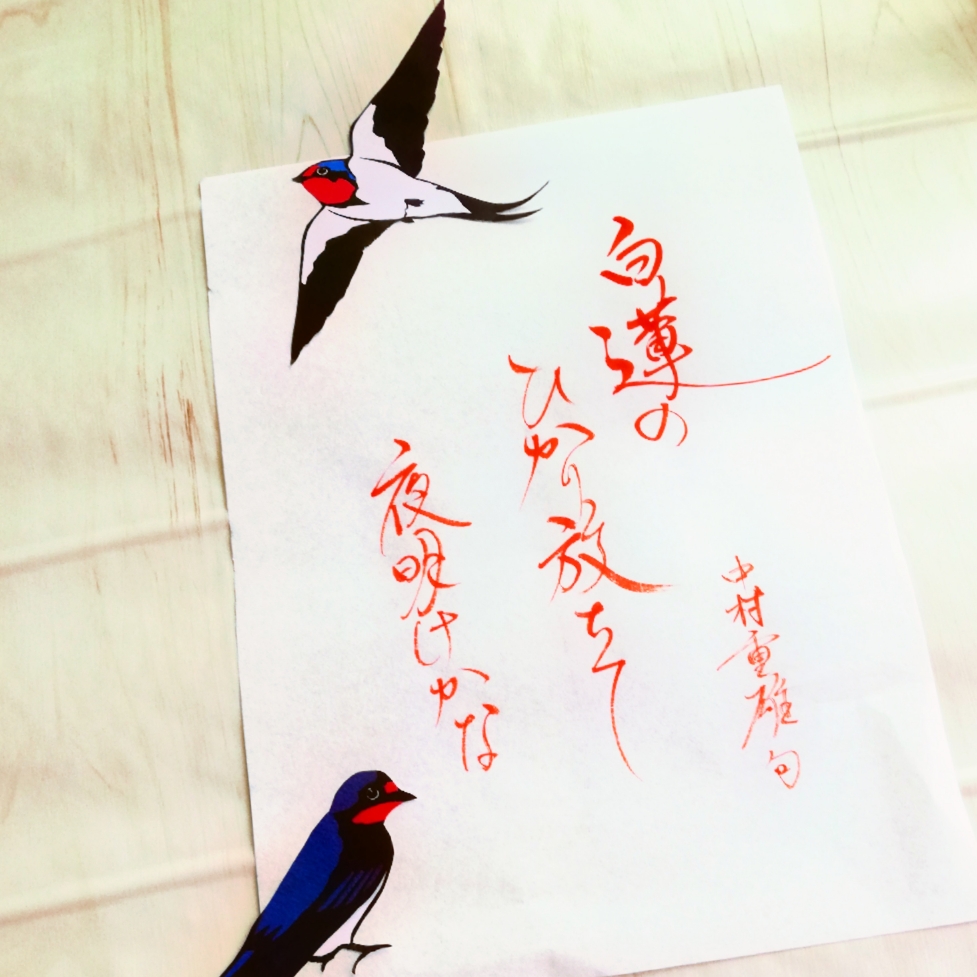 白蓮の
ひかり放ちて
夜明けかな
中村重雄句